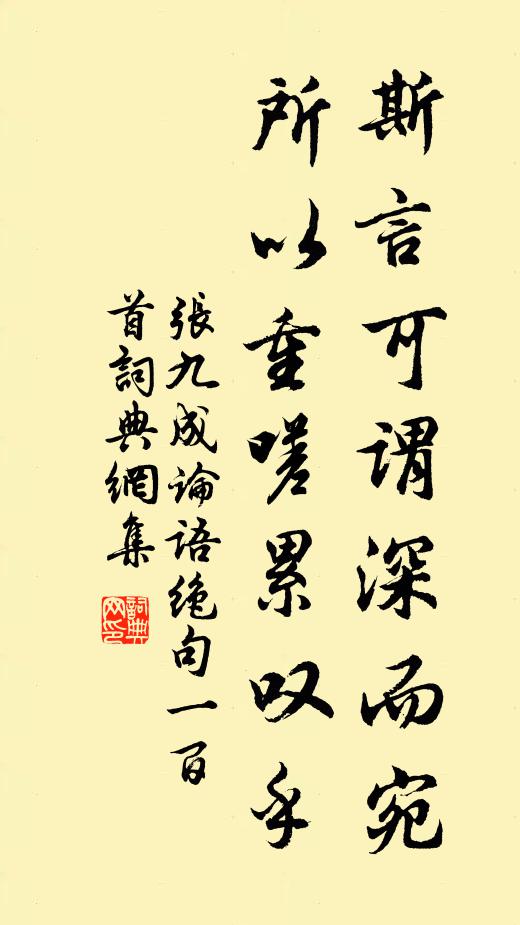 斯言可谓深而宛
所以重嗟累叹乎
張九成论语绝句一百
首詞典網集
詞典
网印